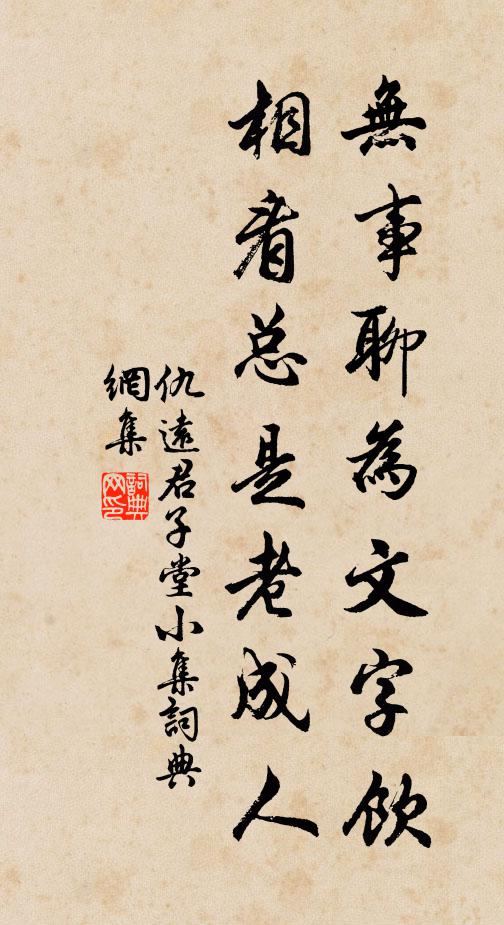 無事聊為文字飲
相看总是老成人
仇遠君子堂小集詞典
網集
詞典
网印